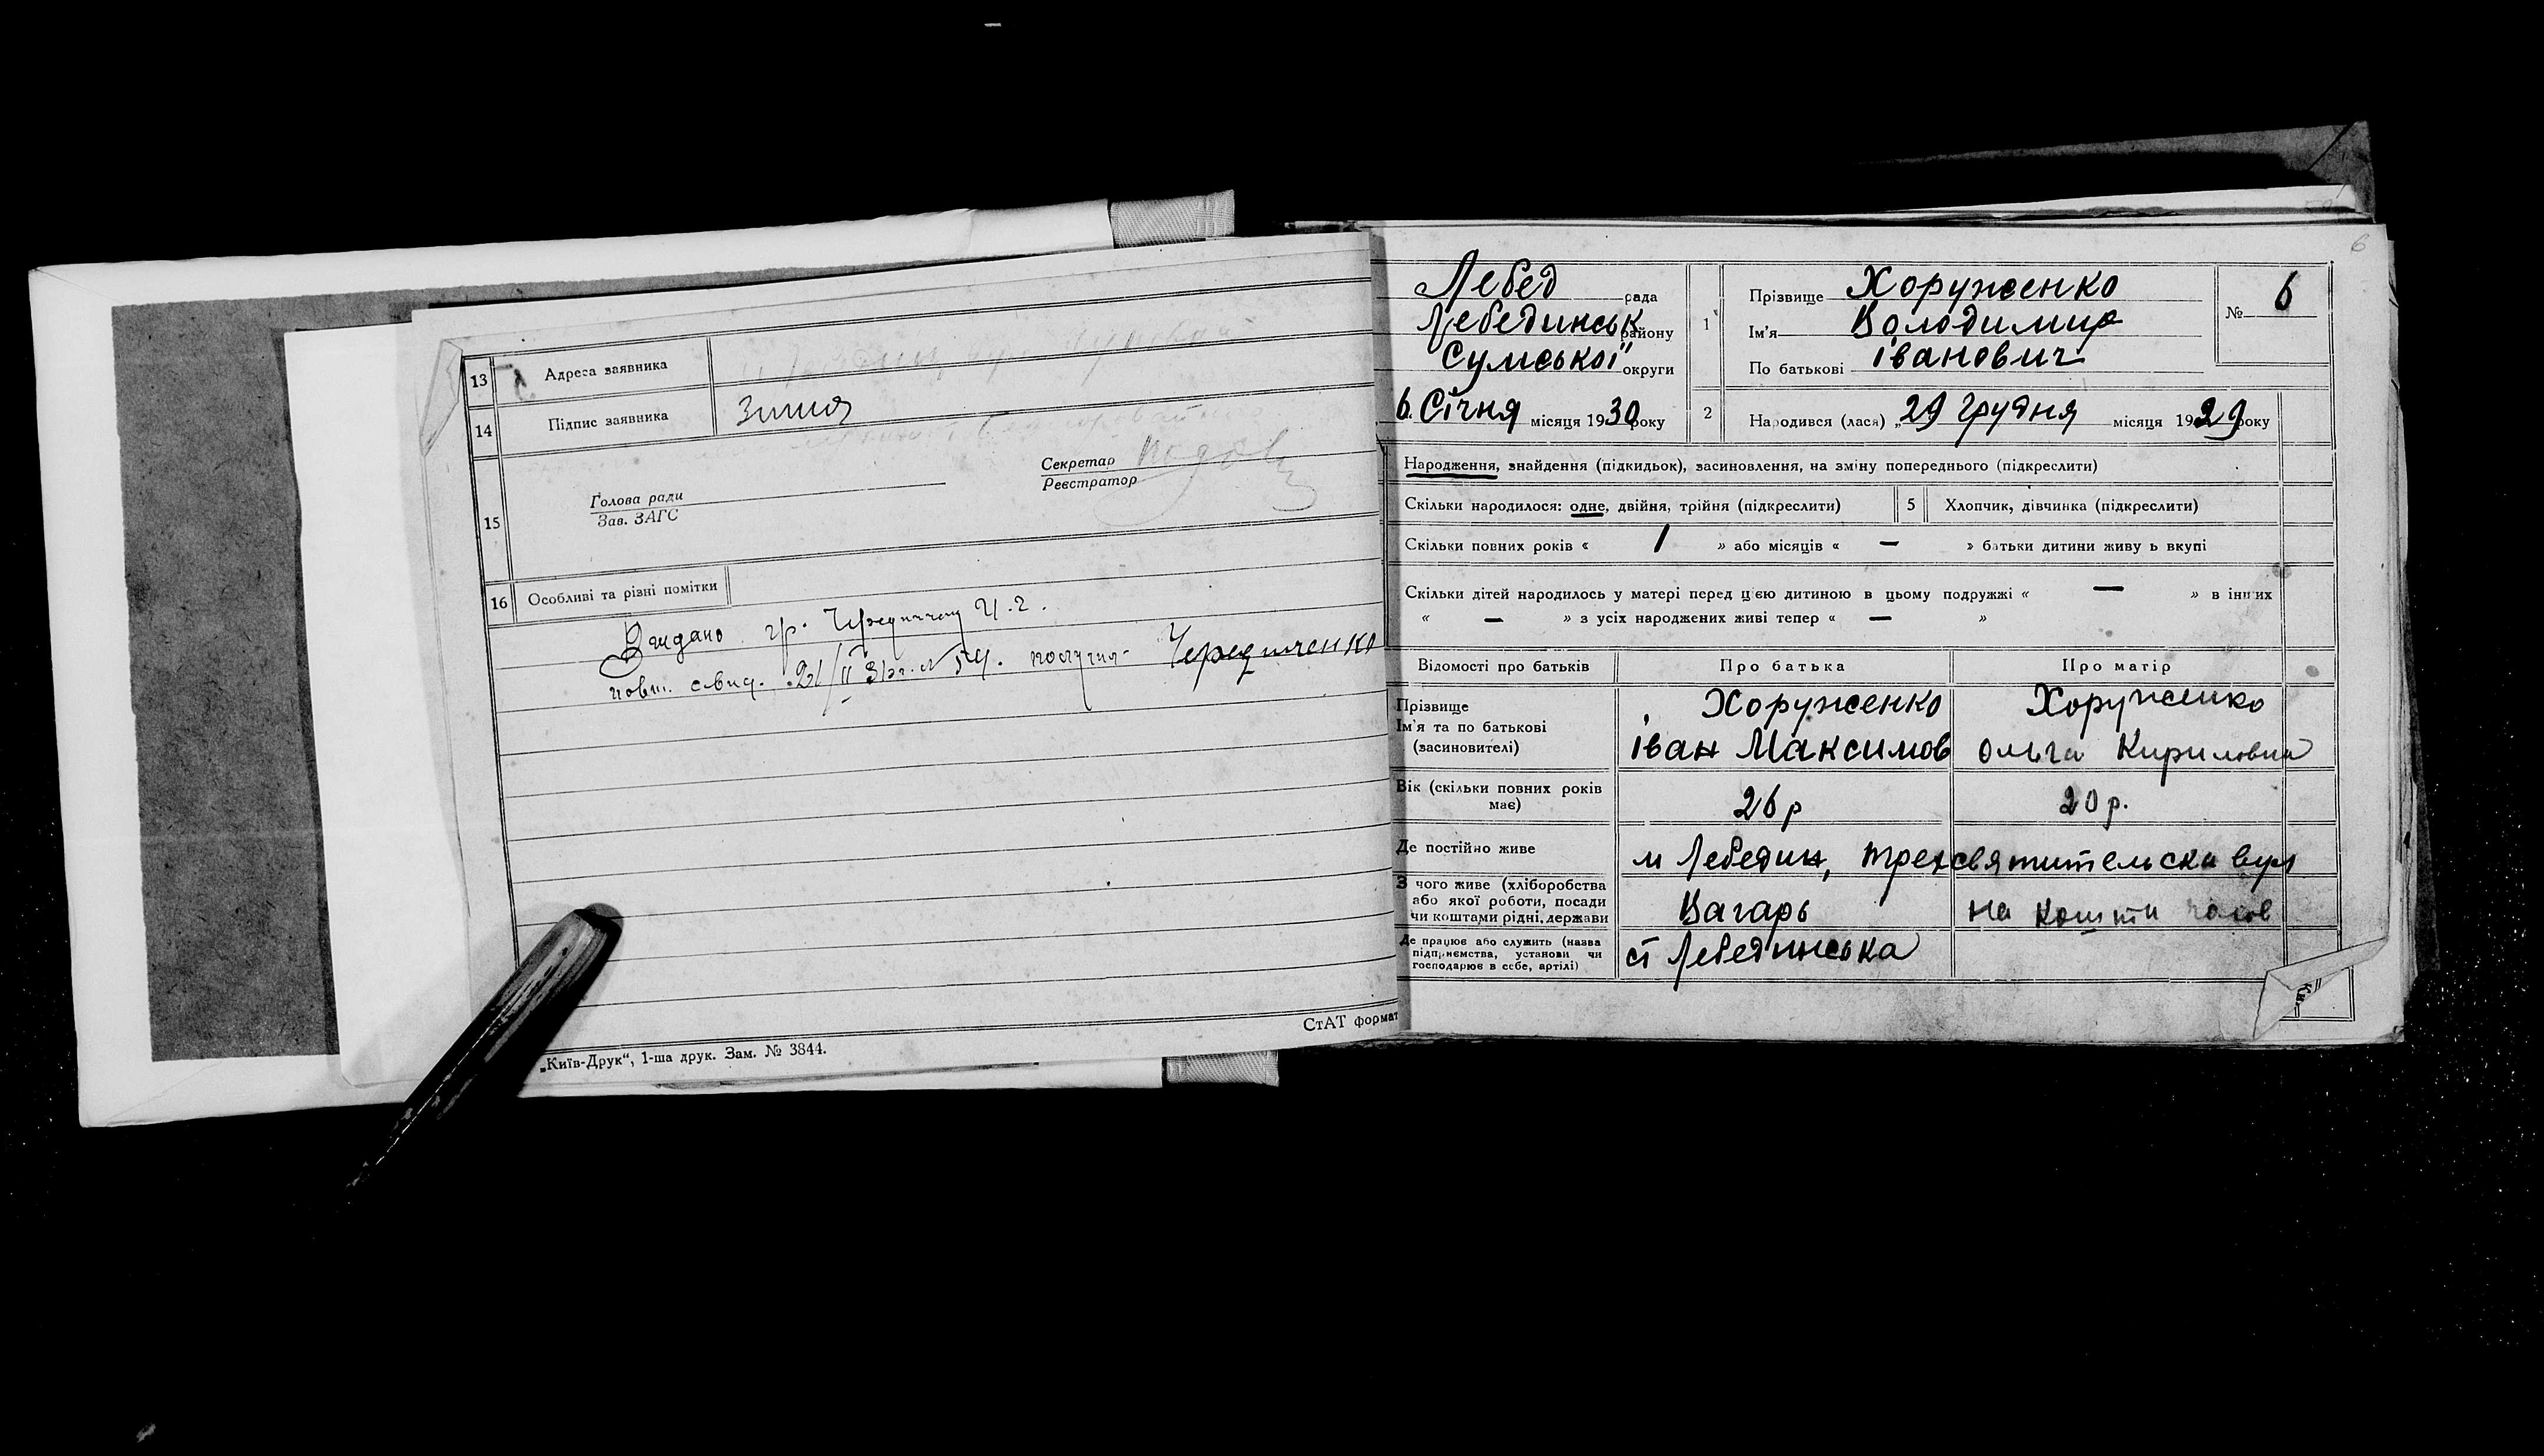 13 Адреса заявника
14 Підпис заявника
15 Голова ради
Зав. ЗАГС
Секретар
Реєстратор
16 Особливі та різні помітки
Видано гр. Чередниченку
повт. свид. 21/II 31р. № 54. получил Чередниченко
СтАТ формат
„Київ-Друк“, 1-ша друк. Зам. № 3844.
6
Лебед рада
Лебединськ району
Сумської округи
6 Січня місяця 1930 року
1 Прізвище Хоруженко
Ім'я Володимир
По батькові іванович
№ 6
2 Народився (лася) „29 Грудня місяця 1929 року
Народження, знайдення (підкидьок), засиновлення, на зміну попереднього (підкреслити)
Скільки народилося: одне, двійня, трійня (підкреслити) 5 Хлопчик, дівчинка (підкреслити)
Скільки повних років « 1 » або місяців « — » батьки дитини живу ь вкупі
Скільки дітей народилось у матері перед цією дитиною в цьому подружжі « — » в інших
« — » з усіх народжених живі тепер « — »
Відомості про батьків Про батька Про матір
Прізвище Хоруженко Хоруженко
Ім'я та по батькові
(засиновителі) іван Максимов Ольга Кириловна
Вік (скільки повних років
має) 26 р 20 р.
Де постійно живе м Лебедин, трехсвятительска вул
З чого живе (хліборобства
або якої роботи, посади
чи коштами рідні, держави Вагарь на кошти
Де працює або служить (назва
підприємства, установи чи
господарює в себе, артілі) ст Лебединська